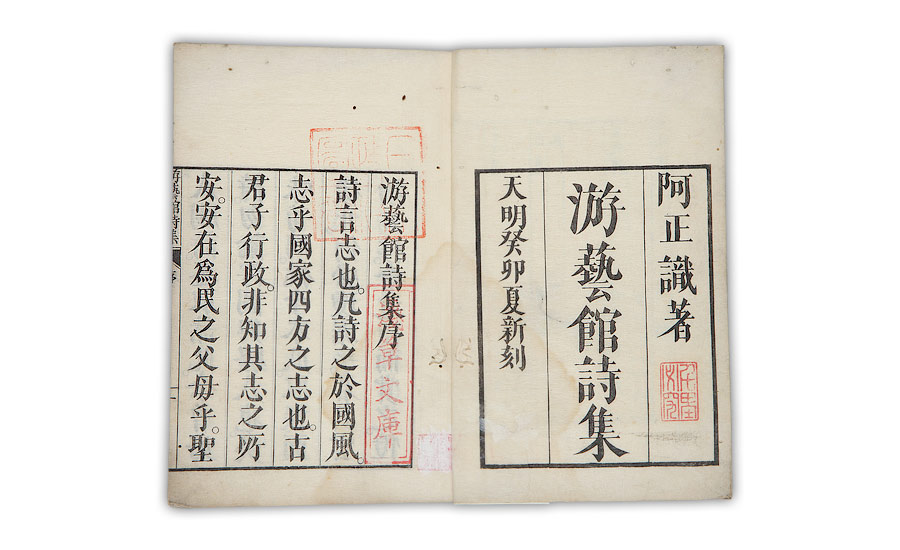 阿正識著
游藝館詩集
天明癸卯夏新刻
游藝館詩集序
詩言志也。凡詩之於國風。
志乎國家四方之志也。古
君子行政。非知其志之所
安。安在爲民之父母乎。聖
游藝館詩集 序 一
文庫